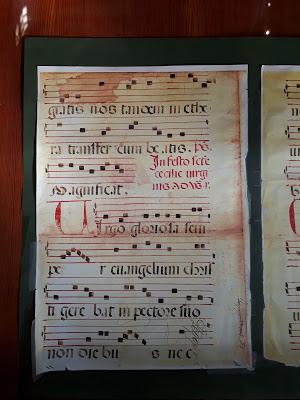 gratis nos tandem in ethe
ra transfer cum be atis. ps.
In festo scte
cecilie virgi
nis ad vs.
Magnificat.
Virgo gloriosa sem
pe r euangelium chris
ti gere bat in pectore suo
non diebu s ne c